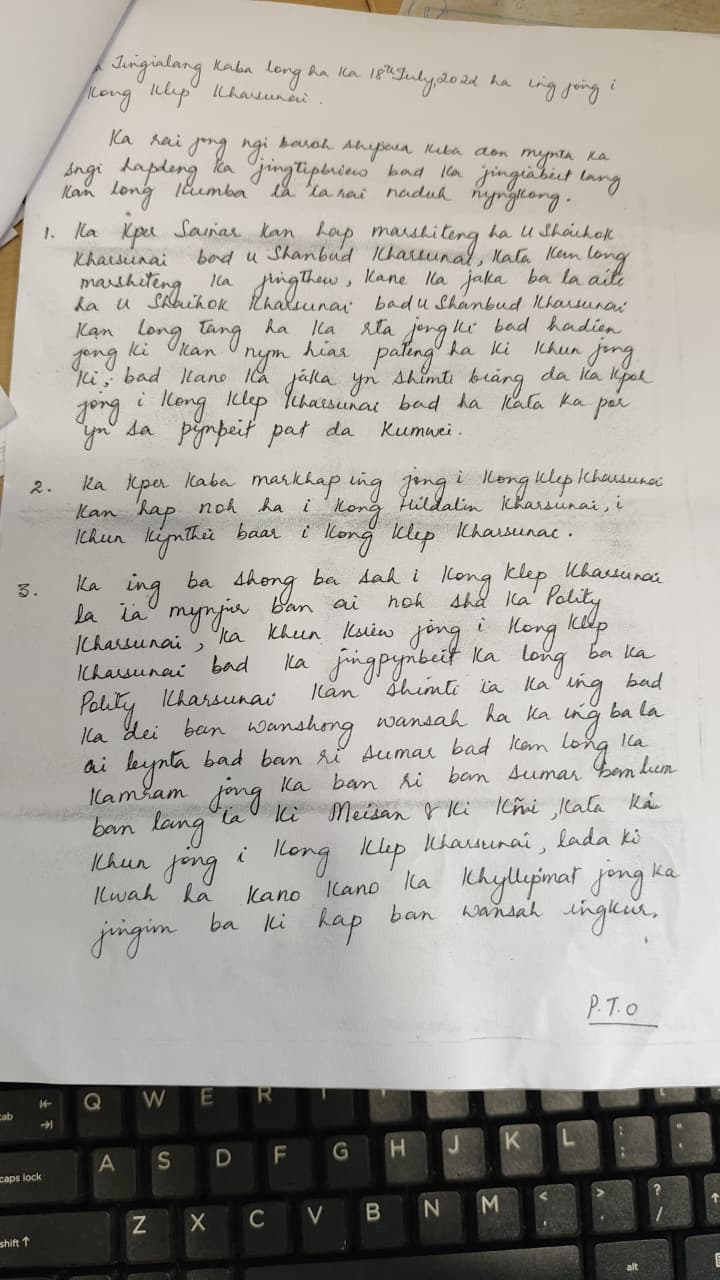 Jingialang kaba long ha ka 18th July, 2022 ha ing jong i
Kong Klep Kharsunai.
Ka rai jong ngi baroh shipara kiba don mynta ka
sngi hapdeng ka jingtipbriew bad ka jingiabeit lang
kan long kumba la ia rai naduh nyngkong.
1. Ka Kper Sainar kan hap marshiteng ha U Shaihok
Kharsunai bad u Shanbud Kharsunai, kata kam long
marshiteng ka jingthew, kane ka jaka ba la aiti
ha u Shaihok Kharsunai bad u Shanbud Kharsunai
kan long tang ha ka rta jong ki bad hadien
jong ki kan nym hiar pateng ha ki khun jong
ki, bad kano ka jaka yn shimti biang da ka kpoh
jong i Kong Klep Kharsunai bad ha kata ka por
yn sa pynbeit pat da kumwei.
2. Ka Kper kaba markhap ing jong i Kong Klep Kharsunai
kan hap noh ha i Kong Hildalin Kharsunai, i
khun kynthei baar i Kong Klep Kharsunai.
3. Ka ing ba shong ba sah i Kong Klep Kharsunai
la ia mynjur ban ai noh sha ka Polity
Kharsunai, ka khun ksiew jong i Kong Klep
Kharsunai bad ka jingpynbeit ka long ba ka
Polity Kharsunai kan shimti ia ka ing bad
ka dei ban wanshong wansah ha ka ing ba la
ai leynta bad ban ri sumar bad kam long ka
kamram jong ka ban ri ban sumar ban lum
ban lang ia ki Meisan & ki Kñi, kata ka
khun jong i Kong Klep Kharsunai, lada ki
kwah ha kano kano ka khyllipmat jong ka
jingim ba ki hap ban wansah ingkur.
P.T.O
Q W E R
caps lock A S D F G H J K L
shift Z X C V B N M < , > . ? /
alt